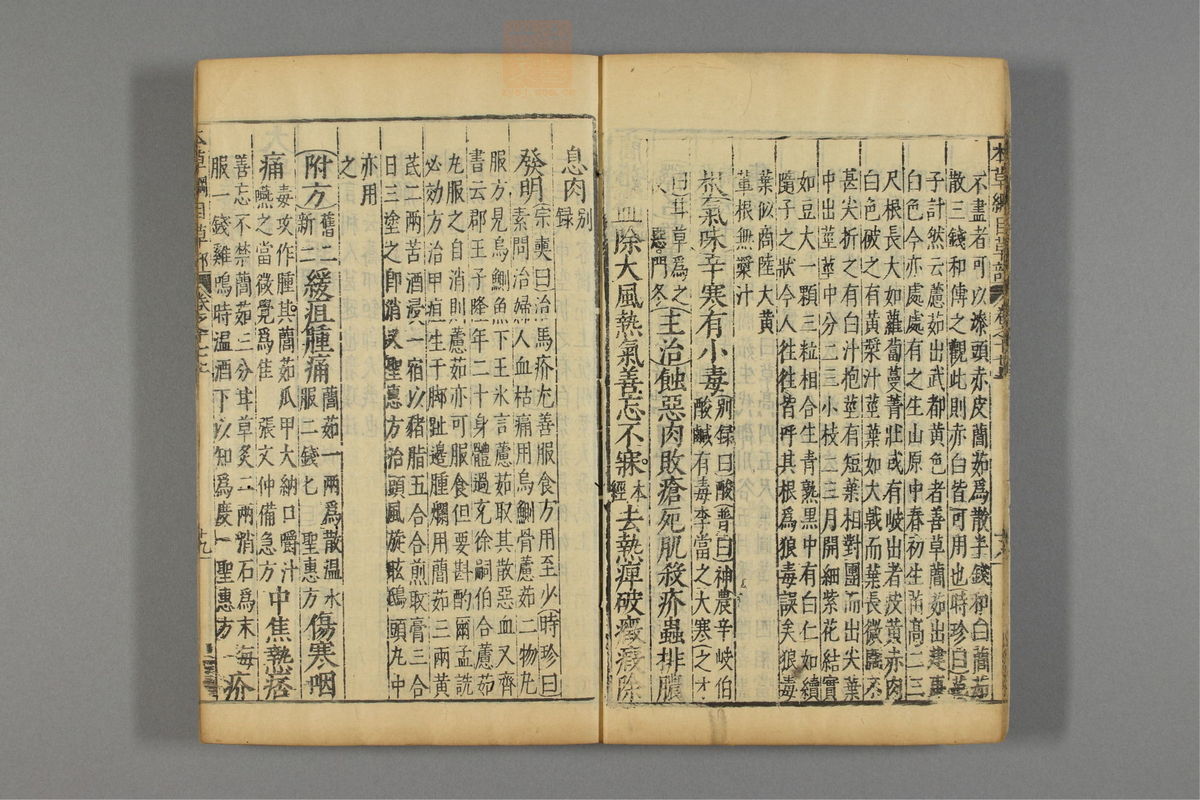 不盡者可以染頭赤皮䕡茹爲散半錢和白䕡茹
散三錢和傅之觀此則赤白皆可用也時珍曰范
子計然云藘茹出武都黄色者善草䕡茹出建康
白色今亦處處有之生山原中春初生苗高二三
尺根長大如蘿蔔蔓菁狀或有岐出者皮黄赤肉
白色破之有黄漿汁莖葉如大戟而葉長微闊不
甚尖折之有白汁抱莖有短葉相對團而出尖葉
中出莖莖中分二三小枝二三月開細紫花結實
如豆大一顆三粒相合生青熟黑中有白仁如續
隨子之狀今人往往皆呼其根爲狼毒誤矣狼毒
葉似商陸大黄
軰根無漿汁
根氣味辛寒有小毒
别録曰酸普曰神農辛岐伯
酸鹹有毒李當之大寒之才
曰甘草爲之
惡門冬
主治蝕惡肉敗瘡死肌殺疥蟲排膿
血除大風熱氣善忘不寐
本經
去熱痺破癥瘕除
息肉
别録
發明
宗奭曰治馬疥尤善服食方用至少時珍曰
素問治婦人血枯痛用烏鰂骨藘茹二物丸
服方見烏鰂魚下王氷言藘茹取其散惡血又齊
書云郡王子隆年二十身體過充徐嗣伯合藘茹
丸服之自消則藘茹亦可服食但要斟酌爾孟詵
必効方治甲疽生于脚趾邊腫爛用䕡茹三兩黄
芪二兩苦酒浸一宿以豬脂五合合煎取膏三合
日三塗之卽消又聖惠方治頭風旋眩鴟頭丸中
亦用
之
附方
舊二
新二
緩疽腫痛
䕡茹一兩爲散温水
服二錢匕
聖惠方
傷寒咽
痛
毒攻作腫
䕡茹爪甲大納口嚼汁
嚥之當微覺爲佳
張文仲備急方
中焦熱痞
善忘不禁䕡茹三分甘草炙二兩消石爲末每
服一錢雞鳴時温酒下以知爲度
聖惠方
疥
本草綱目草部